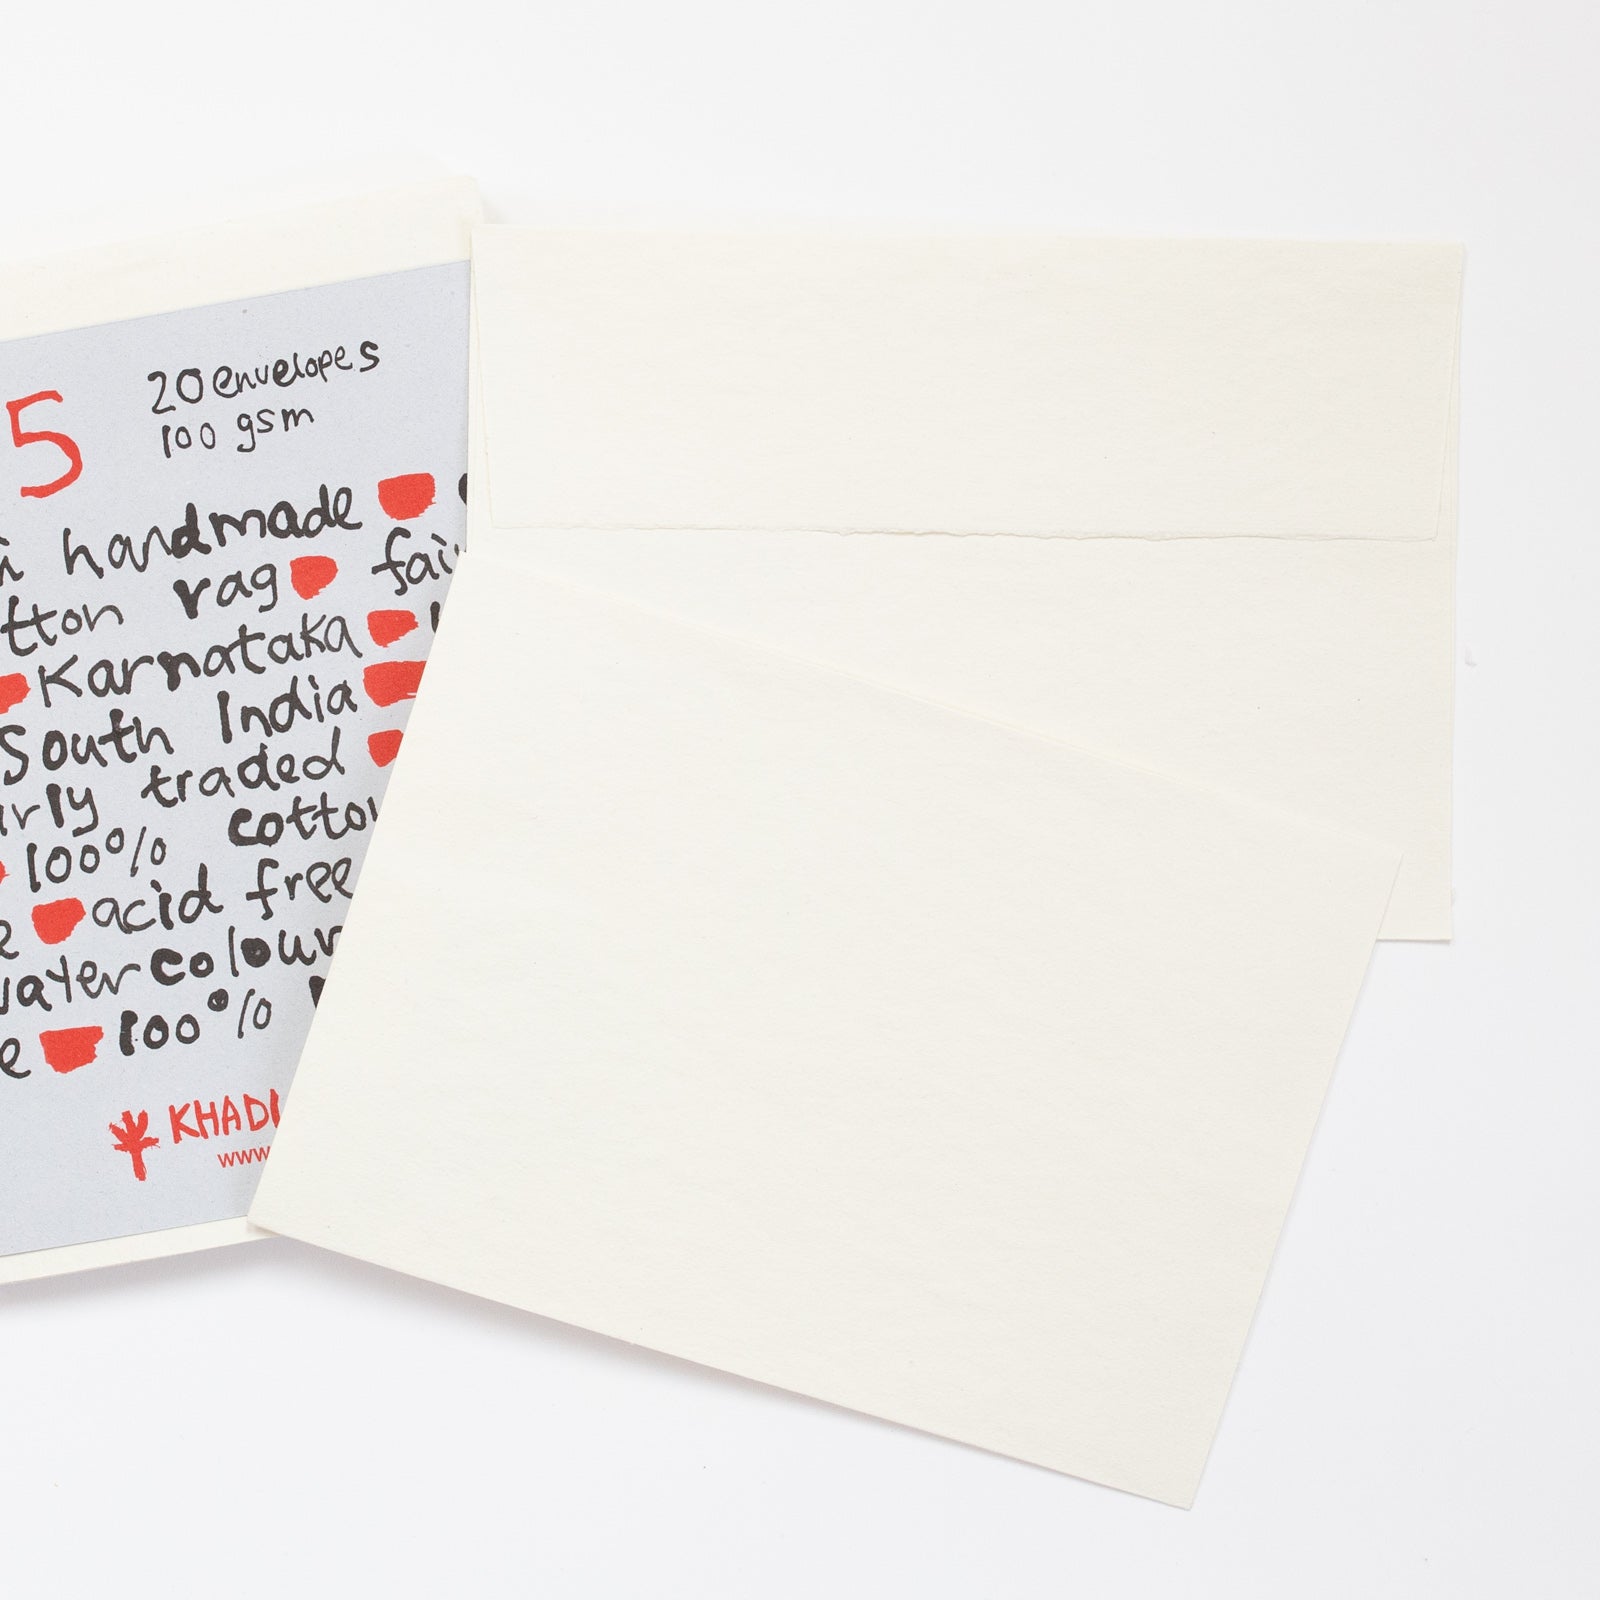 20 envelopes
5
100 gsm
handmade
rag
Karnataka
South India
traded
100% cotto
acid free
colour
100%
KHADI
www.